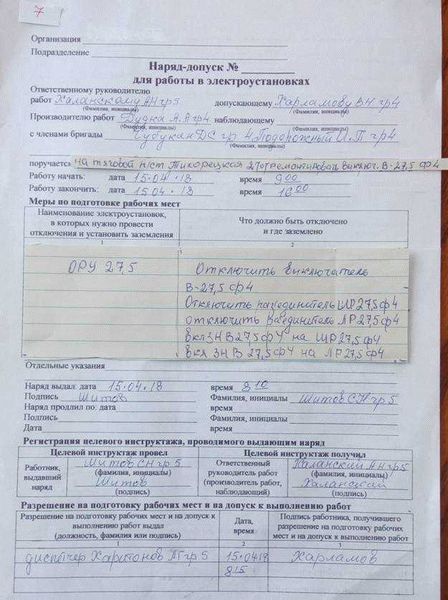 7
Организация
Подразделение
Наряд-допуск №
для работы в электроустановках
Ответственному руководителю
работ Халанскому АН гр5 допускающему Харламову ВН гр4
(Фамилия, инициалы) (Фамилия, инициалы)
Производителю работ Дудка А.А гр4 наблюдающему
(Фамилия, инициалы) (Фамилия, инициалы)
с членами бригады ДС гр 4 Подорожный И.П гр4
(Фамилия, инициалы)
поручается на тяговой п/ст Тихорецкая 27 отремонтировать выключ. В-27,5 ф4
Работу начать: дата 15·04·18 время 9 00
Работу закончить: дата 15 04·18 время 16 00
Меры по подготовке рабочих мест
Наименование электроустановок, в которых нужно провести отключения и установить заземления Что должно быть отключено и где заземлено
1 2
ОРУ 27,5 Отключить выключатель
В-27,5 ф4
Отключить разъединитель ШР27,5 ф4
отключить разъединитель ЛР27,5 ф4
вкл ЗН В27,5 ф4 на ШР27,5 ф4
вкл ЗН В 27,5 ф4 на ЛР27,5 ф4
Отдельные указания
Наряд выдал: дата 15·04·18 время 8 10
Подпись Шитов Фамилия, инициалы Шитов СН гр5
Наряд продлил по: дата время
Подпись Фамилия, инициалы
Дата время
Регистрация целевого инструктажа, проводимого выдающим наряд
Целевой инструктаж провел Целевой инструктаж получил
Работник, выдавший наряд Шитов СН гр 5 (фамилия, инициалы) Шитов (подпись) Ответственный руководитель работ (производитель работ, наблюдающий) Халанский АН гр5 (фамилия, инициалы) Халанский (подпись)
Разрешение на подготовку рабочих мест и на допуск к выполнению работ
Разрешение на подготовку рабочих мест и на допуск к выполнению работ выдал (должность, фамилия или подпись) Дата, время Подпись работника, получившего разрешение на подготовку рабочих мест и на допуск к выполнению работ
1 2 3
диспетчер Харитонов гр 5 15·04 18 Харламов
8 15